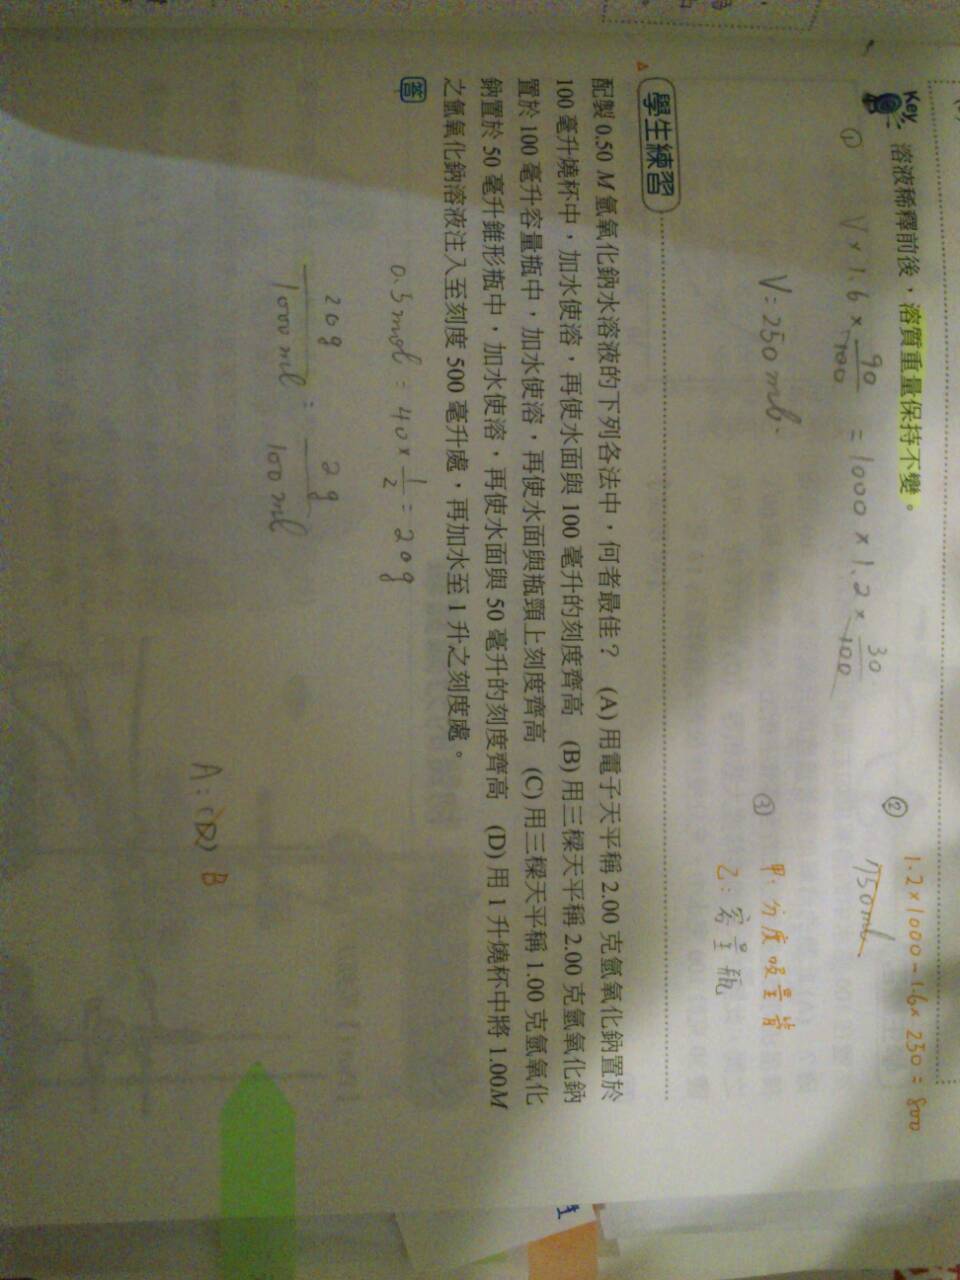 Key 溶液稀釋前後，溶質重量保持不變。
① V × 1.6 × 90/100 = 1000 × 1.2 × 30/100
V = 250 mL.
② 1.2×1000-1.6×250=800
750ml
③ 甲：分度吸量管
乙：容量瓶
學生練習
配製 0.50 M 氫氧化鈉水溶液的下列各法中，何者最佳？ (A) 用電子天平稱 2.00 克氫氧化鈉置於
100 毫升燒杯中，加水使溶，再使水面與 100 毫升的刻度齊高 (B) 用三樑天平稱 2.00 克氫氧化鈉
置於 100 毫升容量瓶中，加水使溶，再使水面與瓶頸上刻度齊高 (C) 用三樑天平稱 1.00 克氫氧化
鈉置於 50 毫升錐形瓶中，加水使溶，再使水面與 50 毫升的刻度齊高 (D) 用 1 升燒杯中將 1.00M
之氫氧化鈉溶液注入至刻度 500 毫升處，再加水至 1 升之刻度處。
答
0.5mol = 40 × 1/2 = 20g
20g/1000 ml = 2g/100 ml
A: (D) B